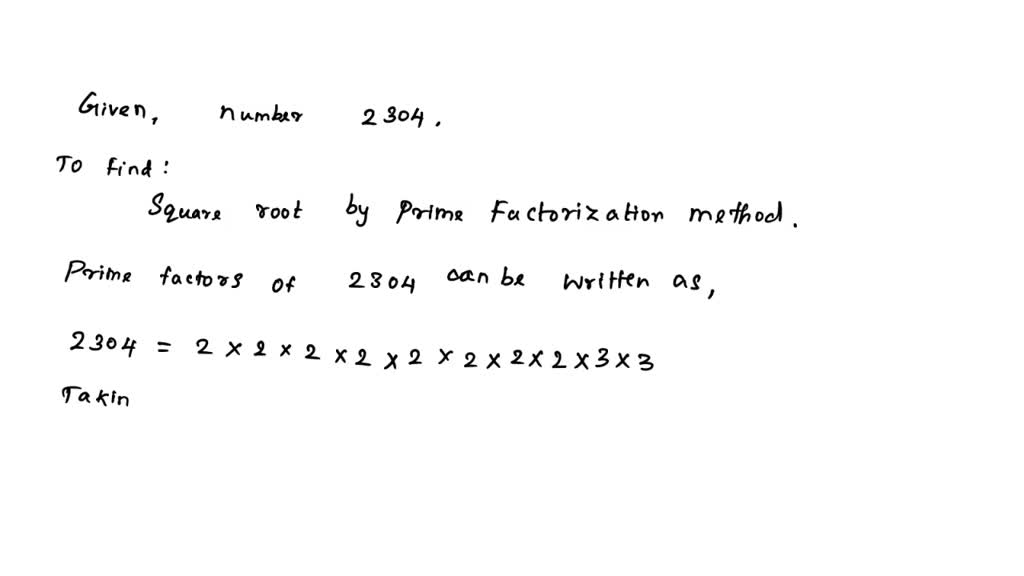 Given, number 2304.
To find:
Square root by Prime Factorization method.
Prime factors of 2304 can be written as,
2304 = 2 × 2 × 2 × 2 × 2 × 2 × 2 × 2 × 3 × 3
Takin